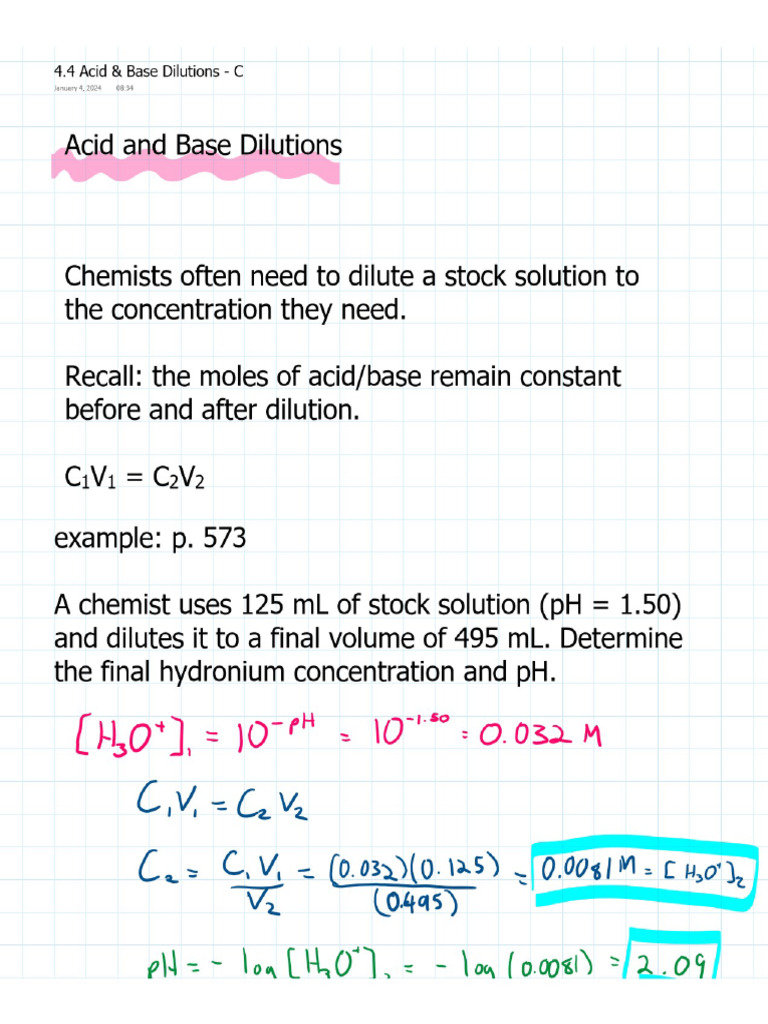 4.4 Acid & Base Dilutions - C
January 4, 2024 08:34
Acid and Base Dilutions
Chemists often need to dilute a stock solution to
the concentration they need.
Recall: the moles of acid/base remain constant
before and after dilution.
C₁V₁ = C₂V₂
example: p. 573
A chemist uses 125 mL of stock solution (pH = 1.50)
and dilutes it to a final volume of 495 mL. Determine
the final hydronium concentration and pH.
[H₃O⁺]₁ = 10⁻ᵖᴴ = 10⁻¹·⁵⁰ = 0.032 M
C₁V₁ = C₂V₂
C₂ = C₁V₁/V₂ = (0.032)(0.125)/(0.495) = 0.0081 M = [H₃O⁺]₂
pH = - log [H₃O⁺]₁ = - log (0.0081) = 2.09